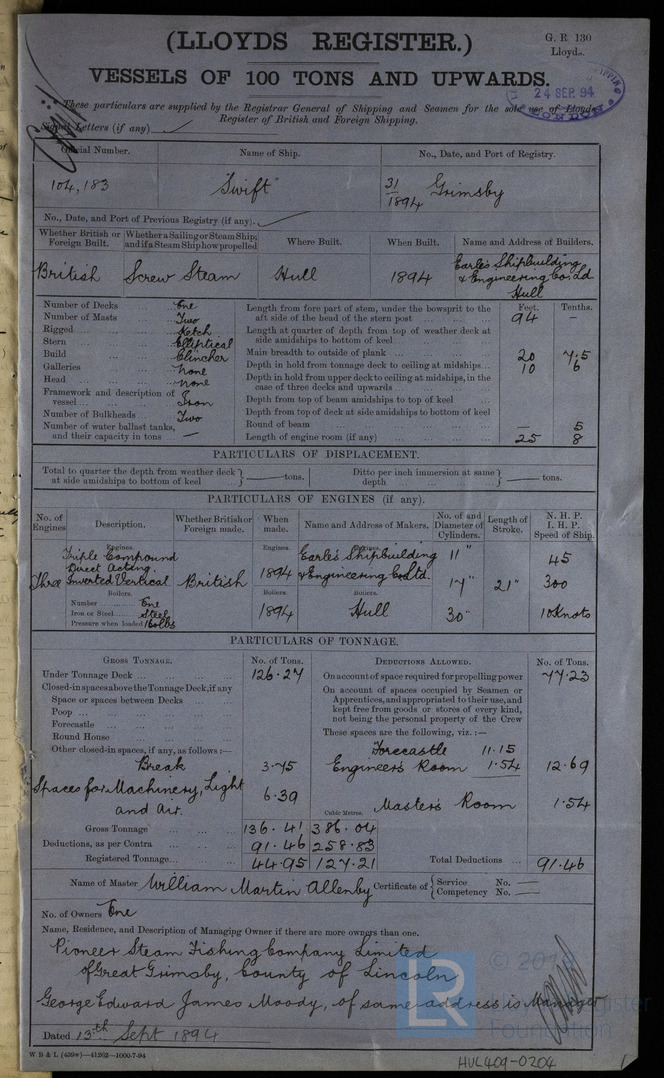 (LLOYDS REGISTER.)
G. R. 130
Lloyds.
VESSELS OF 100 TONS AND UPWARDS.
24 SEP. 94
These particulars are supplied by the Registrar General of Shipping and Seamen for the sole use of Lloyds
Register of British and Foreign Shipping.
Signal Letters (if any)
Official Number. Name of Ship. No., Date, and Port of Registry.
104,183 "Swift" 31/1894 Grimsby
No., Date, and Port of Previous Registry (if any).
Whether British or Foreign Built. Whether a Sailing or Steam Ship; and if a Steam Ship how propelled Where Built. When Built. Name and Address of Builders.
British Screw Steam Hull 1894 Earle's Shipbuilding & Engineering Co. Ld Hull
Feet. Tenths.
Number of Decks One
Number of Masts Two
Rigged Ketch
Stern Elliptical
Build Clincher
Galleries None
Head none
Framework and description of vessel Iron
Number of Bulkheads Two
Number of water ballast tanks, and their capacity in tons —
Length from fore part of stem, under the bowsprit to the aft side of the head of the stern post 94 —
Length at quarter of depth from top of weather deck at side amidships to bottom of keel
Main breadth to outside of plank 20 7.5
Depth in hold from tonnage deck to ceiling at midships 10 6
Depth in hold from upper deck to ceiling at midships, in the case of three decks and upwards
Depth from top of beam amidships to top of keel
Depth from top of deck at side amidships to bottom of keel
Round of beam — 5
Length of engine room (if any) 25 8
PARTICULARS OF DISPLACEMENT.
Total to quarter the depth from weather deck at side amidships to bottom of keel — tons. Ditto per inch immersion at same depth — tons.
PARTICULARS OF ENGINES (if any).
No. of Engines. Description. Whether British or Foreign made. When made. Name and Address of Makers. No. of and Diameter of Cylinders. Length of Stroke. N. H. P. I. H. P. Speed of Ship.
Engines. Engines. Engines.
Triple Compound Earle's Shipbuilding 11" 45
Direct Acting. 1894 & Engineering Co. Ltd.
Three Inverted Vertical British 17" 21" 300
Boilers. Boilers. Boilers.
Number One
Iron or Steel Steel 1894 Hull 30" 10 Knots
Pressure when loaded 160 lbs
PARTICULARS OF TONNAGE.
GROSS TONNAGE. No. of Tons. DEDUCTIONS ALLOWED. No. of Tons.
Under Tonnage Deck 126.27
Closed-in spaces above the Tonnage Deck, if any
Space or spaces between Decks
Poop
Forecastle
Round House
Other closed-in spaces, if any, as follows:—
Break 3.75
Spaces for Machinery, Light and Air. 6.39
On account of space required for propelling power 77.23
On account of spaces occupied by Seamen or
Apprentices, and appropriated to their use, and
kept free from goods or stores of every kind,
not being the personal property of the Crew
These spaces are the following, viz.:—
Forecastle 11.15
Engineers Room 1.54 12.69
Masters Room 1.54
Cubic Metres.
Gross Tonnage 136.41 386.04
Deductions, as per Contra 91.46 258.83
Registered Tonnage 44.95 127.21 Total Deductions 91.46
Name of Master William Martin Allenby Certificate of Service No. — Competency No. —
No. of Owners One
Name, Residence, and Description of Managing Owner if there are more owners than one.
Pioneer Steam Fishing Company Limited
of Great Grimsby, County of Lincoln
George Edward James Moody, of same address is Manager
Dated 13th Sept 1894
W B & L (439w)—41262—1000-7-94
HUL409-0204
LR
Foundation